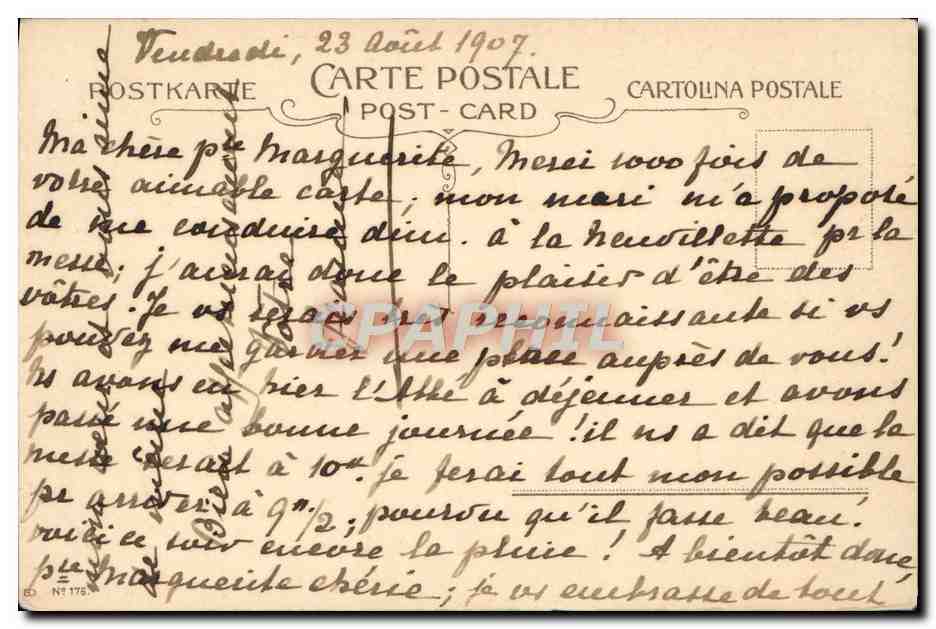 Vendredi, 23 Août 1907.
POSTKARTE CARTE POSTALE CARTOLINA POSTALE
POST-CARD
Ma chère pte Marguerite, Merci 1000 fois de
votre aimable carte; mon mari m'a proposé
de me conduire dim. à la Neuvillette pr la
messe; j'aurai donc le plaisir d'être des
vôtres. Je vs serais très reconnaissante si vs
pouvez me garder une place auprès de vous!
Ns avons eu hier l'Abbé à déjeuner et avons
passé une bonne journée! il ns a dit que la
messe serait à 10h. je ferai tout mon possible
pr arriver à 9h 1/2; pourvu qu'il fasse beau!
voici ce soir encore la pluie! A bientôt donc,
pte Marguerite chérie; je vs embrasse de tout
Bien affectueusement
votre
CPAPHIL
ED Nº 176